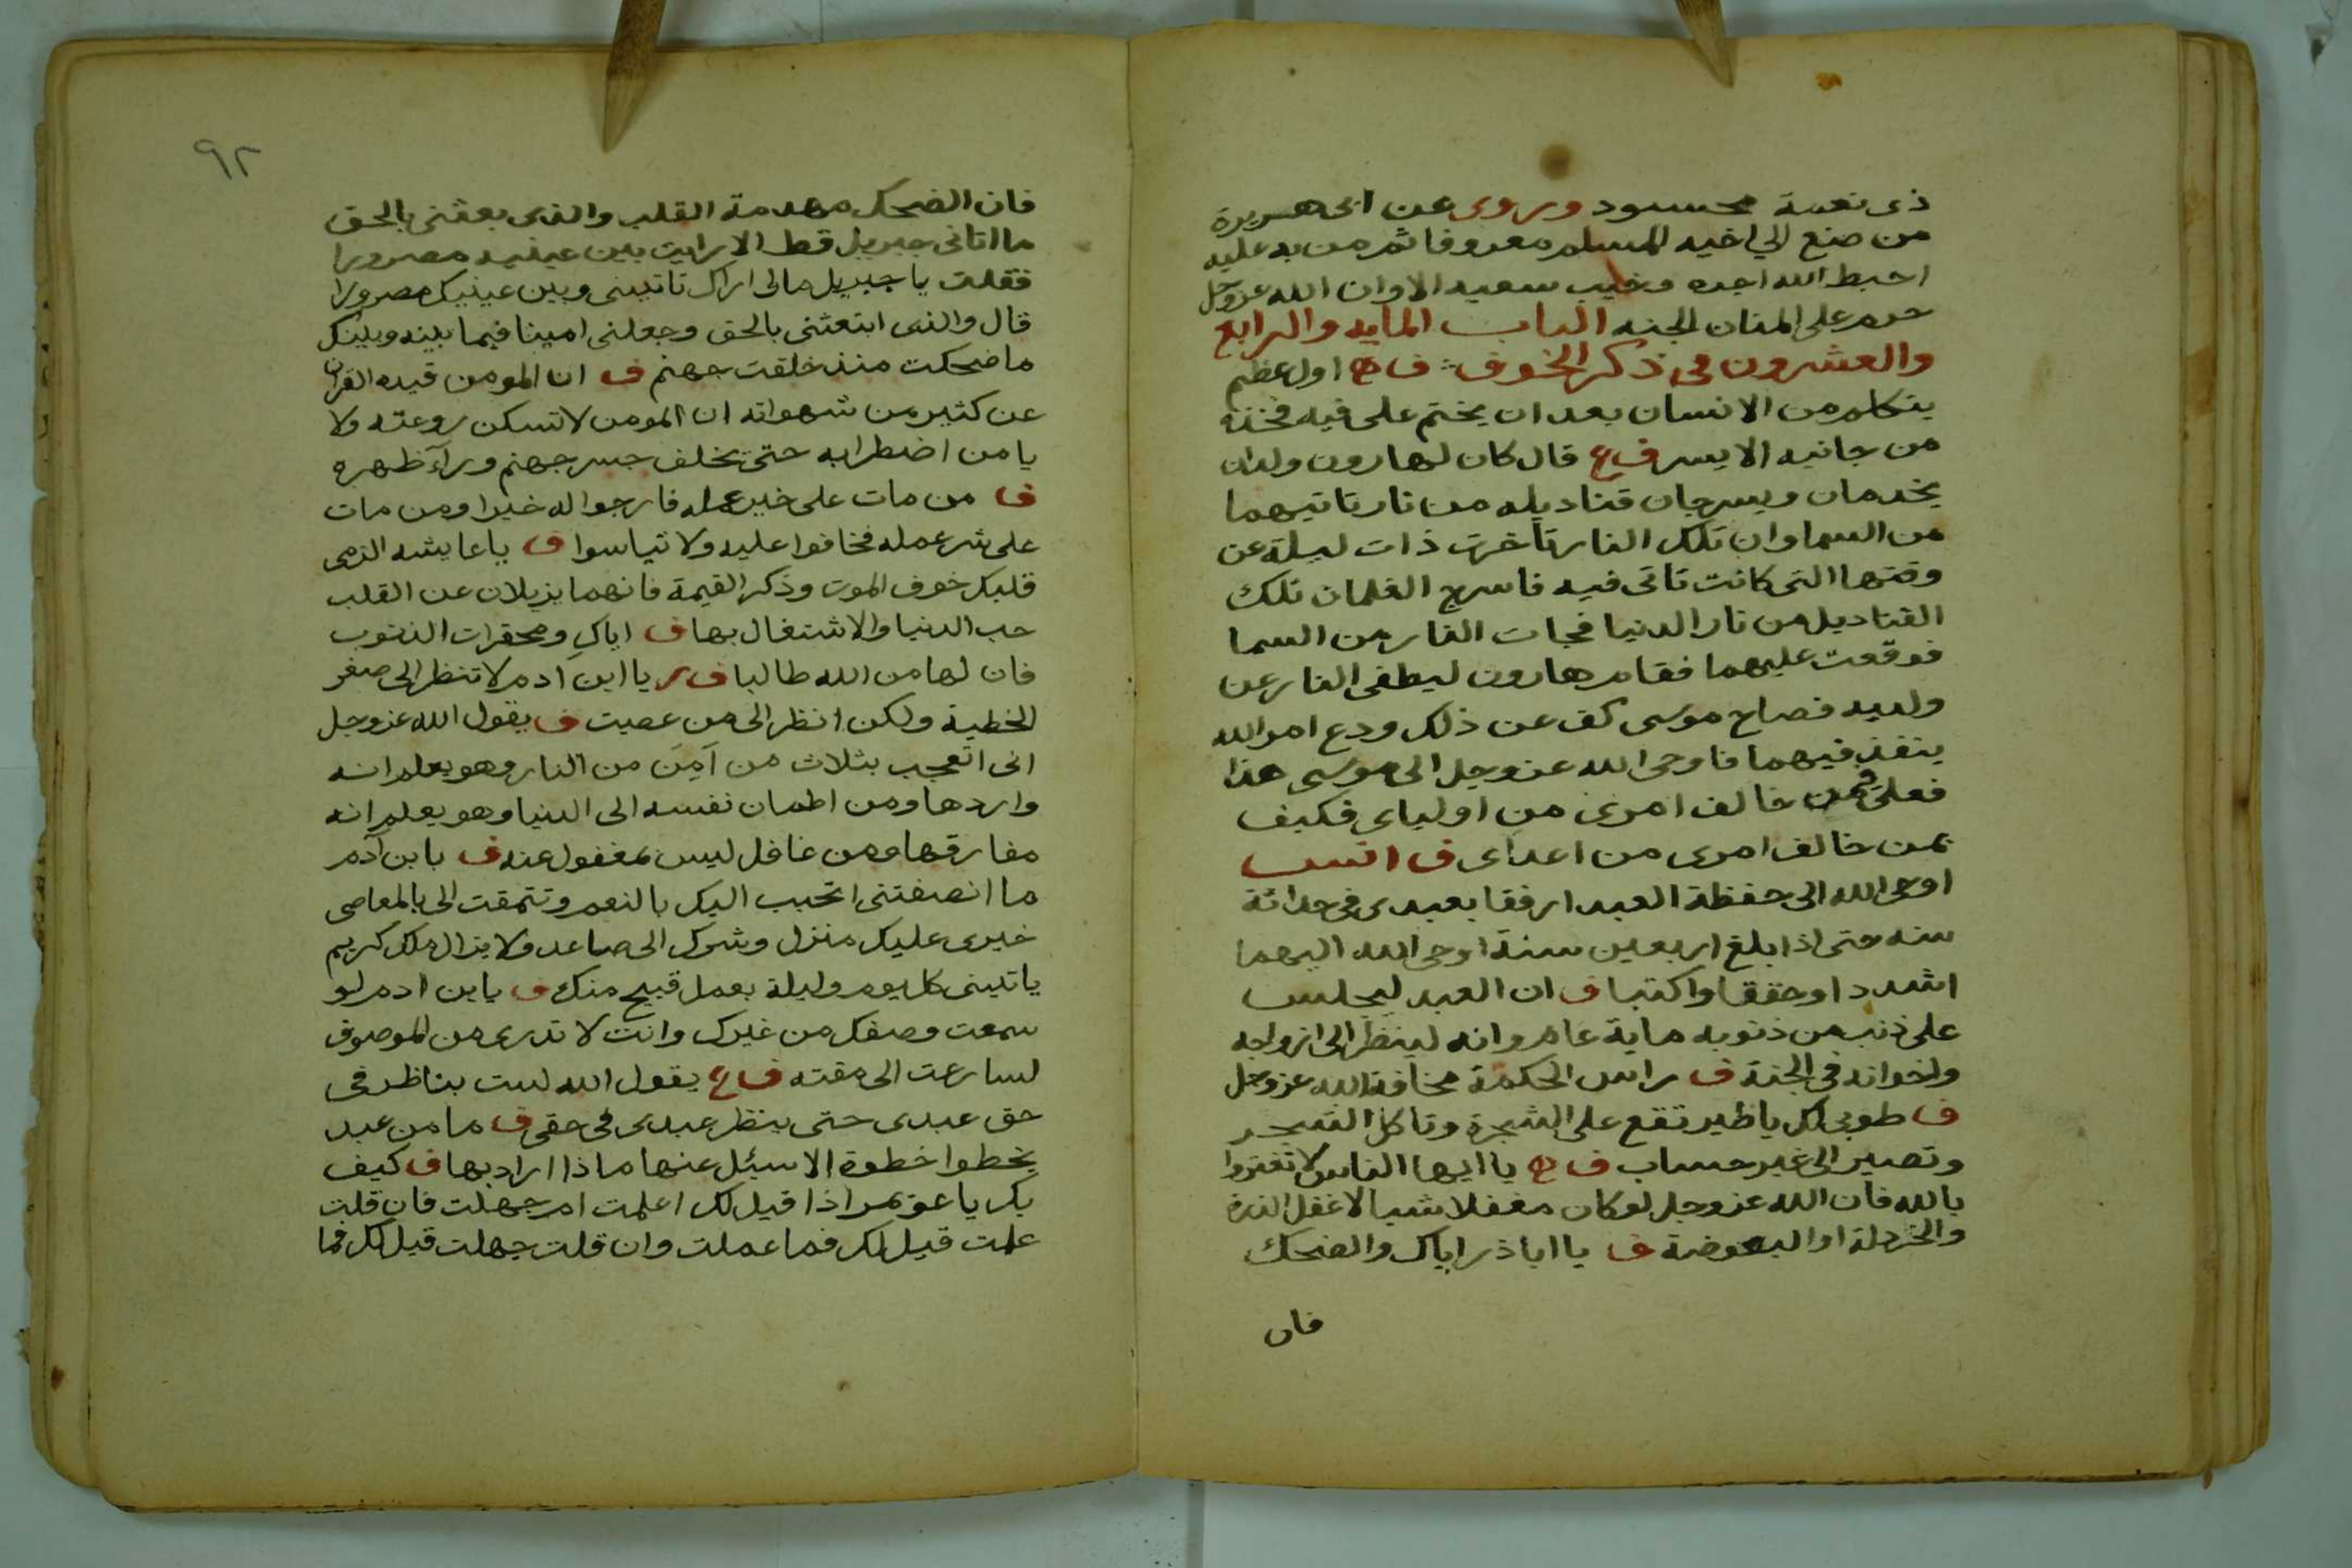 ذى نعمة محسود وروى عن ابى هريرة
من صنع الي اخيه المسلم معروفا ثم من به عليه
احبط الله اجره وخيب سعيه الا وان الله عز وجل
حرم على المنان الجنه الباب المايه والرابع
والعشرون فى ذكر الخوف ف ح اول عظم
يتكلم من الانسان بعد ان يختم على فيه فخذه
من جانبه الايسر ف ع قال كان لهارون ولدان
يخدمان ويسرجان قناديله من نار تاتيهما
من السما وان تلك النار تأخرت ذات ليلة عن
وقتها التى كانت تاتى فيه فاسرج الغلمان تلك
القناديل من نار الدنيا فجات النار من السما
فوقعت عليهما فقام هارون ليطفى النار عن
ولديه فصاح موسى كف عن ذلك ودع امر الله
ينفذ فيهما فاوحى الله عز وجل الى موسى هذا
فعلى فمن خالف امرى من اولياى فكيف
بمن خالف امرى من اعداى ف انس
اوحى الله الى حفظة العبد ارفقا بعبدى فى حداثة
سنه حتى اذا بلغ اربعين سنة اوحى الله اليهما
اشددا وحققا واكتبا ف ان العبد ليجلس
على ذنب من ذنوبه ماية عام وانه لينظر الى ازواجه
واخوانه فى الجنة ف راس الحكمة مخافة الله عز وجل
ف طوبى لك يا طير تقع على الشجرة وتاكل الشجر
وتصير الى غير حساب ف ح يا ايها الناس لا تغتروا
بالله فان الله عز وجل لو كان مغفلا شيا لاغفل الذرة
والخردلة او البعوضة ف يا ابا ذر اياك والضحك
فان
٩٢
فان الضحك مهدمة القلب والذى بعثنى بالحق
ما اتانى جبريل قط الا رايت بين عينيه مصرورا
فقلت يا جبريل مالى اراك تاتينى وبين عينيك مصرورا
قال والذى ابتعثنى بالحق وجعلنى امينا فيما بينه وبينك
ما ضحكت منذ خلقت جهنم ف ان المومن قيده القران
عن كثير من شهواته ان المومن لا تسكن روعته ولا
يامن اضطرابه حتى يخلف جسر جهنم ورآء ظهره
ف من مات على خير عمله فارجوا له خيرا ومن مات
على شر عمله فخافوا عليه ولا تياسوا ف يا عايشه الزمى
قلبك خوف الموت وذكر القيمة فانهما يزيلان عن القلب
حب الدنيا والاشتغال بها ف اياكِ ومحقرات الذنوب
فان لها من الله طالبا ف ر يا ابن ادم لا تنظر الى صغر
الخطية ولكن انظر الى من عصيت ف يقول الله عز وجل
انى اتعجب بثلاث من آمِنَ من النار وهو يعلم انه
واردها ومن اطمان نفسه الى الدنيا وهو يعلم انه
مفارقها ومن غافل ليس بمغفول عنه ف يا بن آدم
ما انصفتنى اتحبب اليك بالنعم وتتمقت الى بالمعاصى
خيرى عليك منزل وشرك الى صاعد ولا يزال ملك كريم
ياتينى كل يوم وليلة بعمل قبيح منك ف يا بن ادم لو
سمعت وصفك من غيرك وانت لا تدرى من الموصوف
لسارعت الى مقته ف ع يقول الله لست بناظر فى
حق عبدى حتى ينظر عبدى فى حقى ف ما من عبد
يخطوا خطوة الا سيئل عنها ماذا اراد بها ف كيف
بك يا عويمر اذا قيل لك اعلمت ام جهلت فان قلت
علمت قيل لك فما عملت وان قلت جهلت قيل لك فما